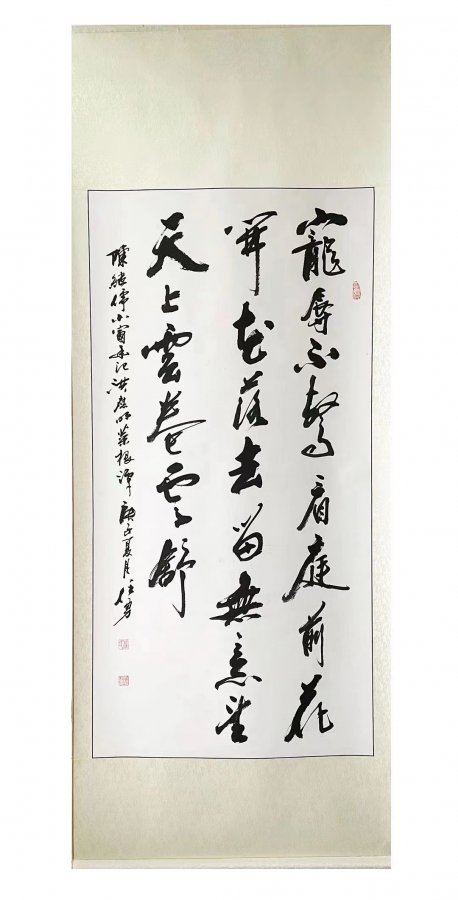 寵辱不驚看庭前花
開花落去留無意望
天上雲卷雲舒
陳繼儒小窗幽記洪應明菜根譚庚子夏月任勇